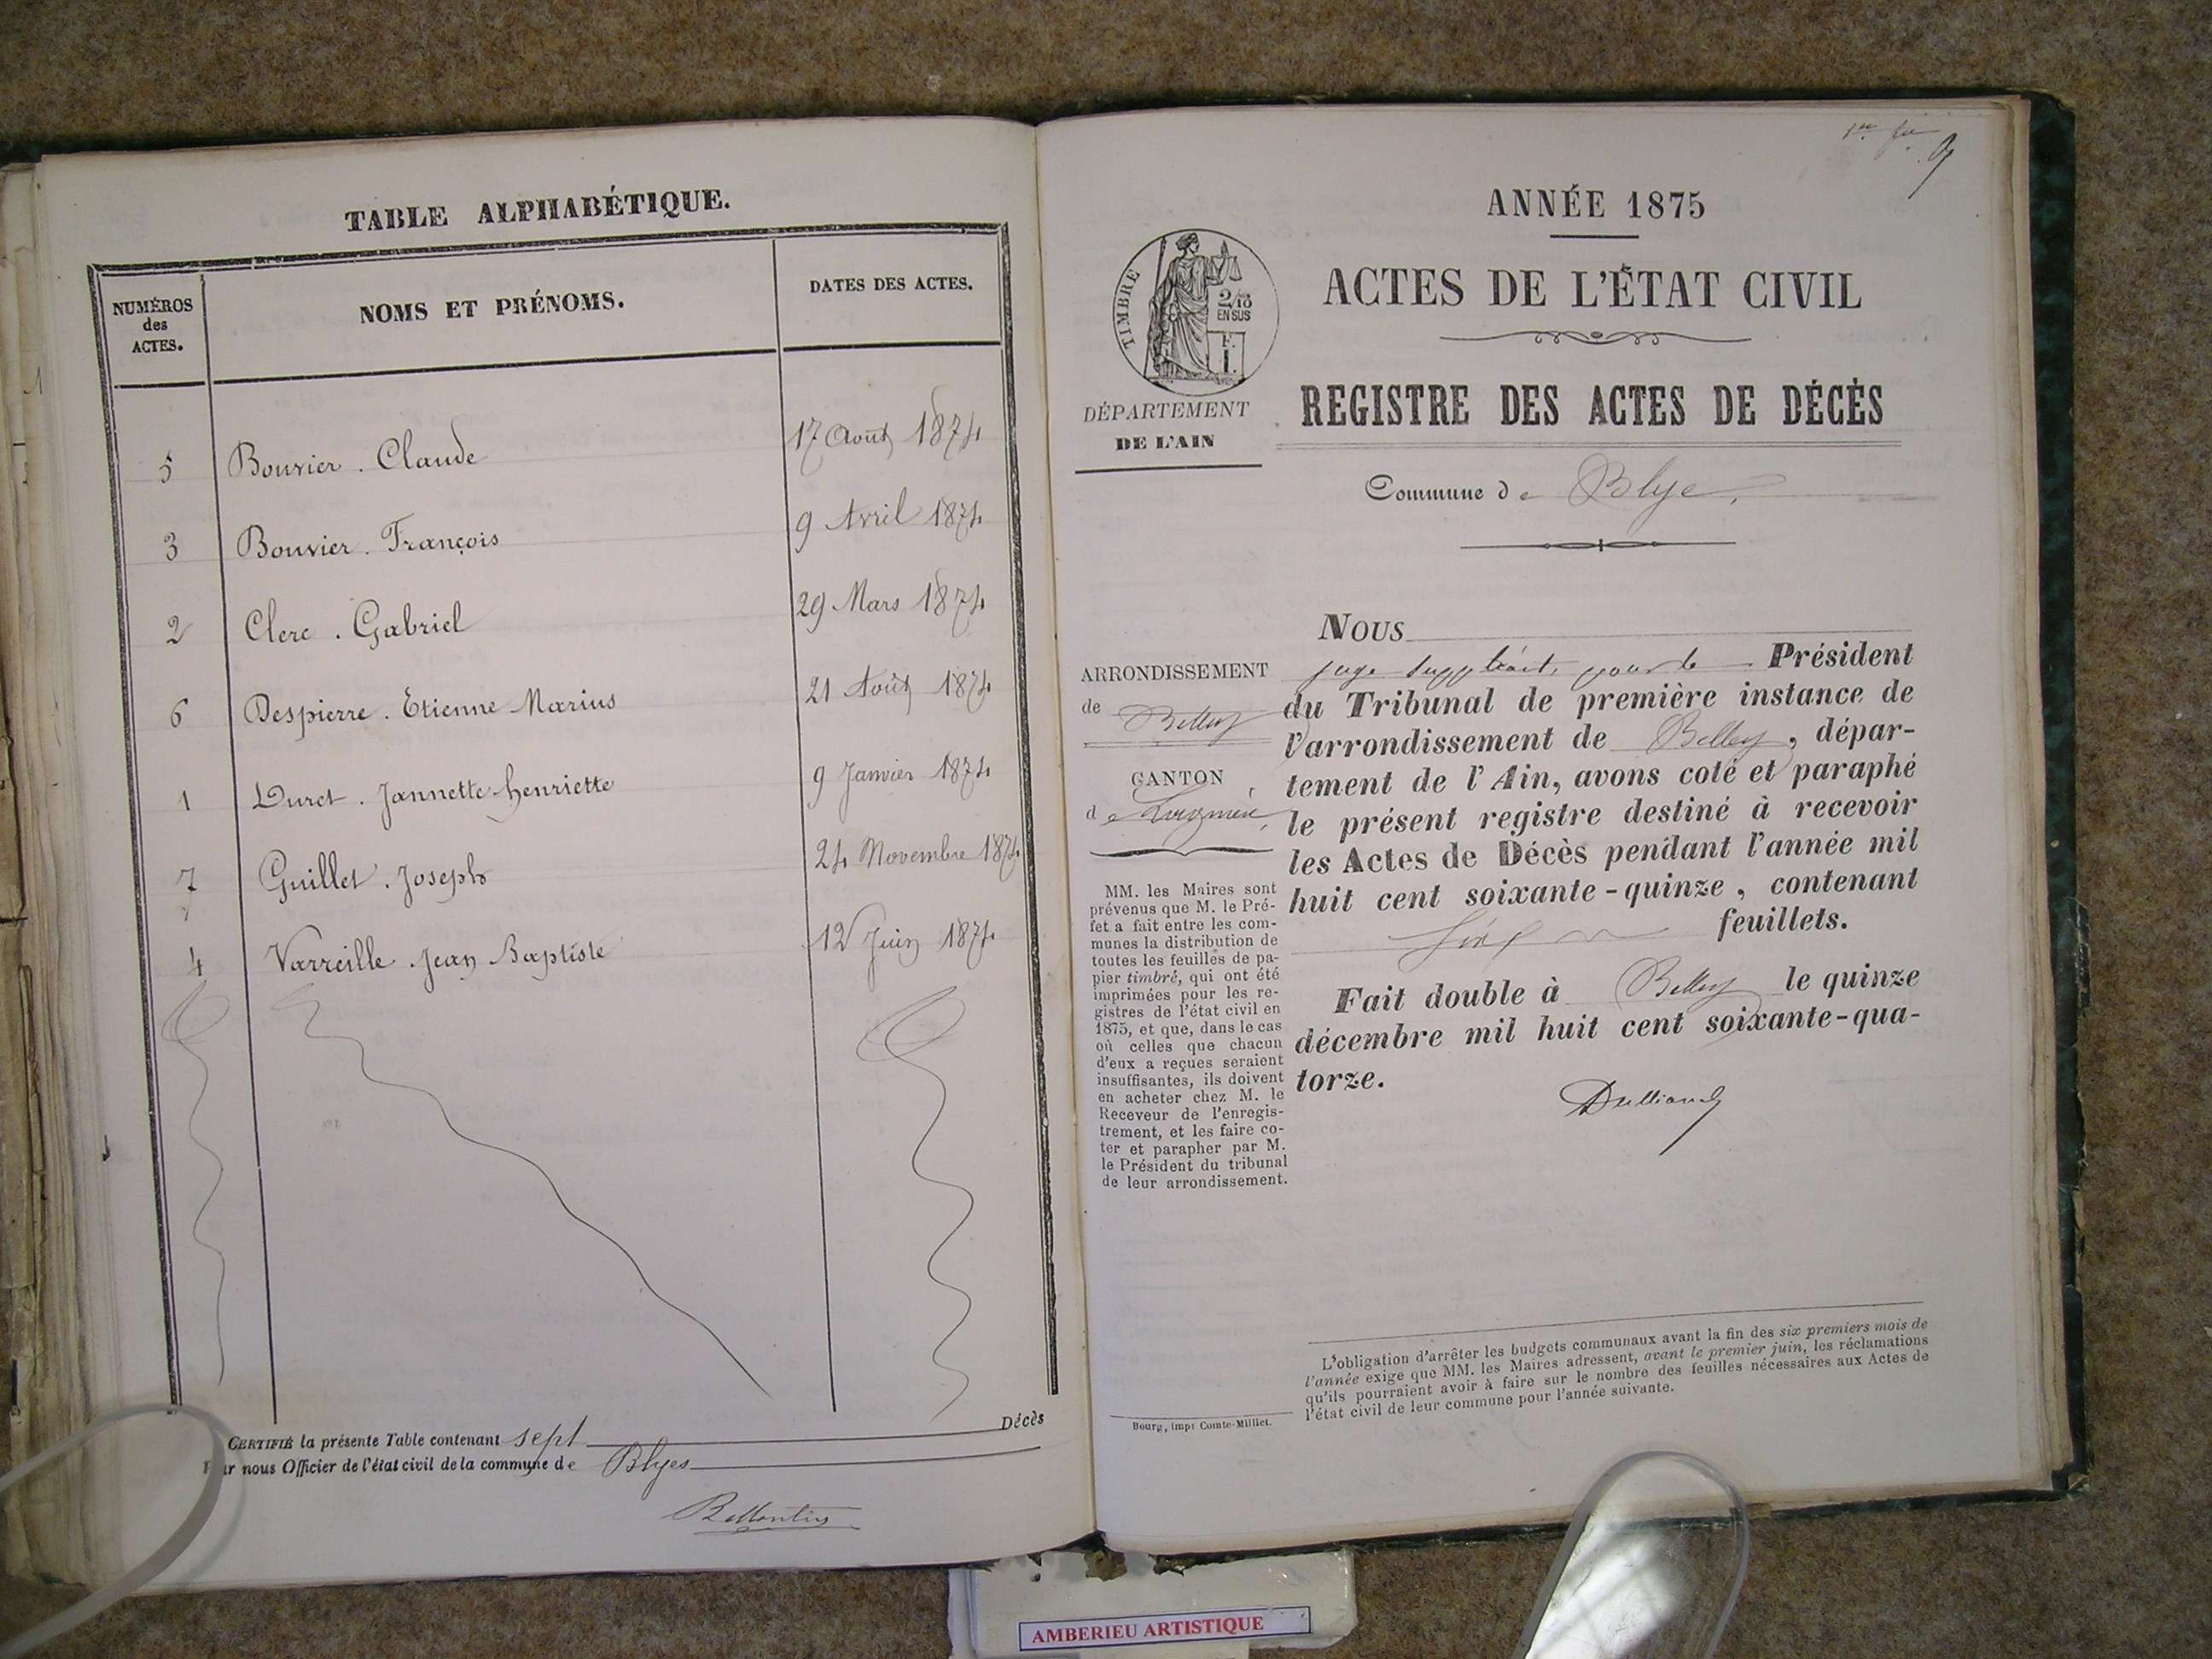 TABLE ALPHABÉTIQUE.
NUMÉROS
des
ACTES.
NOMS ET PRÉNOMS.
DATES DES ACTES.
5 Bouvier . Claude 17 Août 1874
3 Bouvier . François 9 Avril 1874
2 Clerc . Gabriel 29 Mars 1874
6 Despierre . Etienne Marius 21 Août 1874
1 Duret . Jannette henriette 9 Janvier 1874
7 Guillet . Joseph 24 Novembre 1874
4 Varreille . Jean Baptiste 12 Juin 1874
CERTIFIÉ la présente Table contenant sept Décès
Par nous Officier de l'état civil de la commune de Blyes
ANNÉE 1875
TIMBRE
2/10
EN SUS
F.
1.
ACTES DE L'ÉTAT CIVIL
DÉPARTEMENT
DE L'AIN
REGISTRE DES ACTES DE DÉCÈS
Commune de Blye
ARRONDISSEMENT
de Belley
CANTON
de Lagnieu
MM. les Maires sont
prévenus que M. le Pré-
fet a fait entre les com-
munes la distribution de
toutes les feuilles de pa-
pier timbré, qui ont été
imprimées pour les re-
gistres de l'état civil en
1875, et que, dans le cas
où celles que chacun
d'eux a reçues seraient
insuffisantes, ils doivent
en acheter chez M. le
Receveur de l'enregis-
trement, et les faire co-
ter et parapher par M.
le Président du tribunal
de leur arrondissement.
NOUS
juge suppléant, pour le Président
du Tribunal de première instance de
l'arrondissement de Belley, dépar-
tement de l'Ain, avons coté et paraphé
le présent registre destiné à recevoir
les Actes de Décès pendant l'année mil
huit cent soixante-quinze, contenant
feuillets.
Fait double à Belley le quinze
décembre mil huit cent soixante-qua-
torze.
L'obligation d'arrêter les budgets communaux avant la fin des six premiers mois de
l'année exige que MM. les Maires adressent, avant le premier juin, les réclamations
qu'ils pourraient avoir à faire sur le nombre des feuilles nécessaires aux Actes de
l'état civil de leur commune pour l'année suivante.
Bourg, impr Comte-Milliet.
AMBERIEU ARTISTIQUE